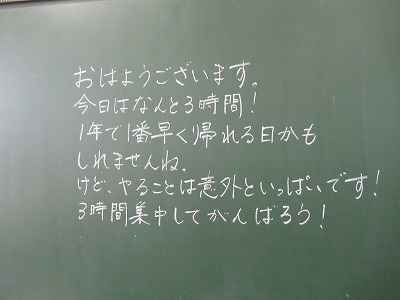 おはようございます。
今日はなんと3時間！
1年で1番早く帰れる日かも
しれませんね。
けど、やることは意外といっぱいです！
3時間集中してがんばろう！